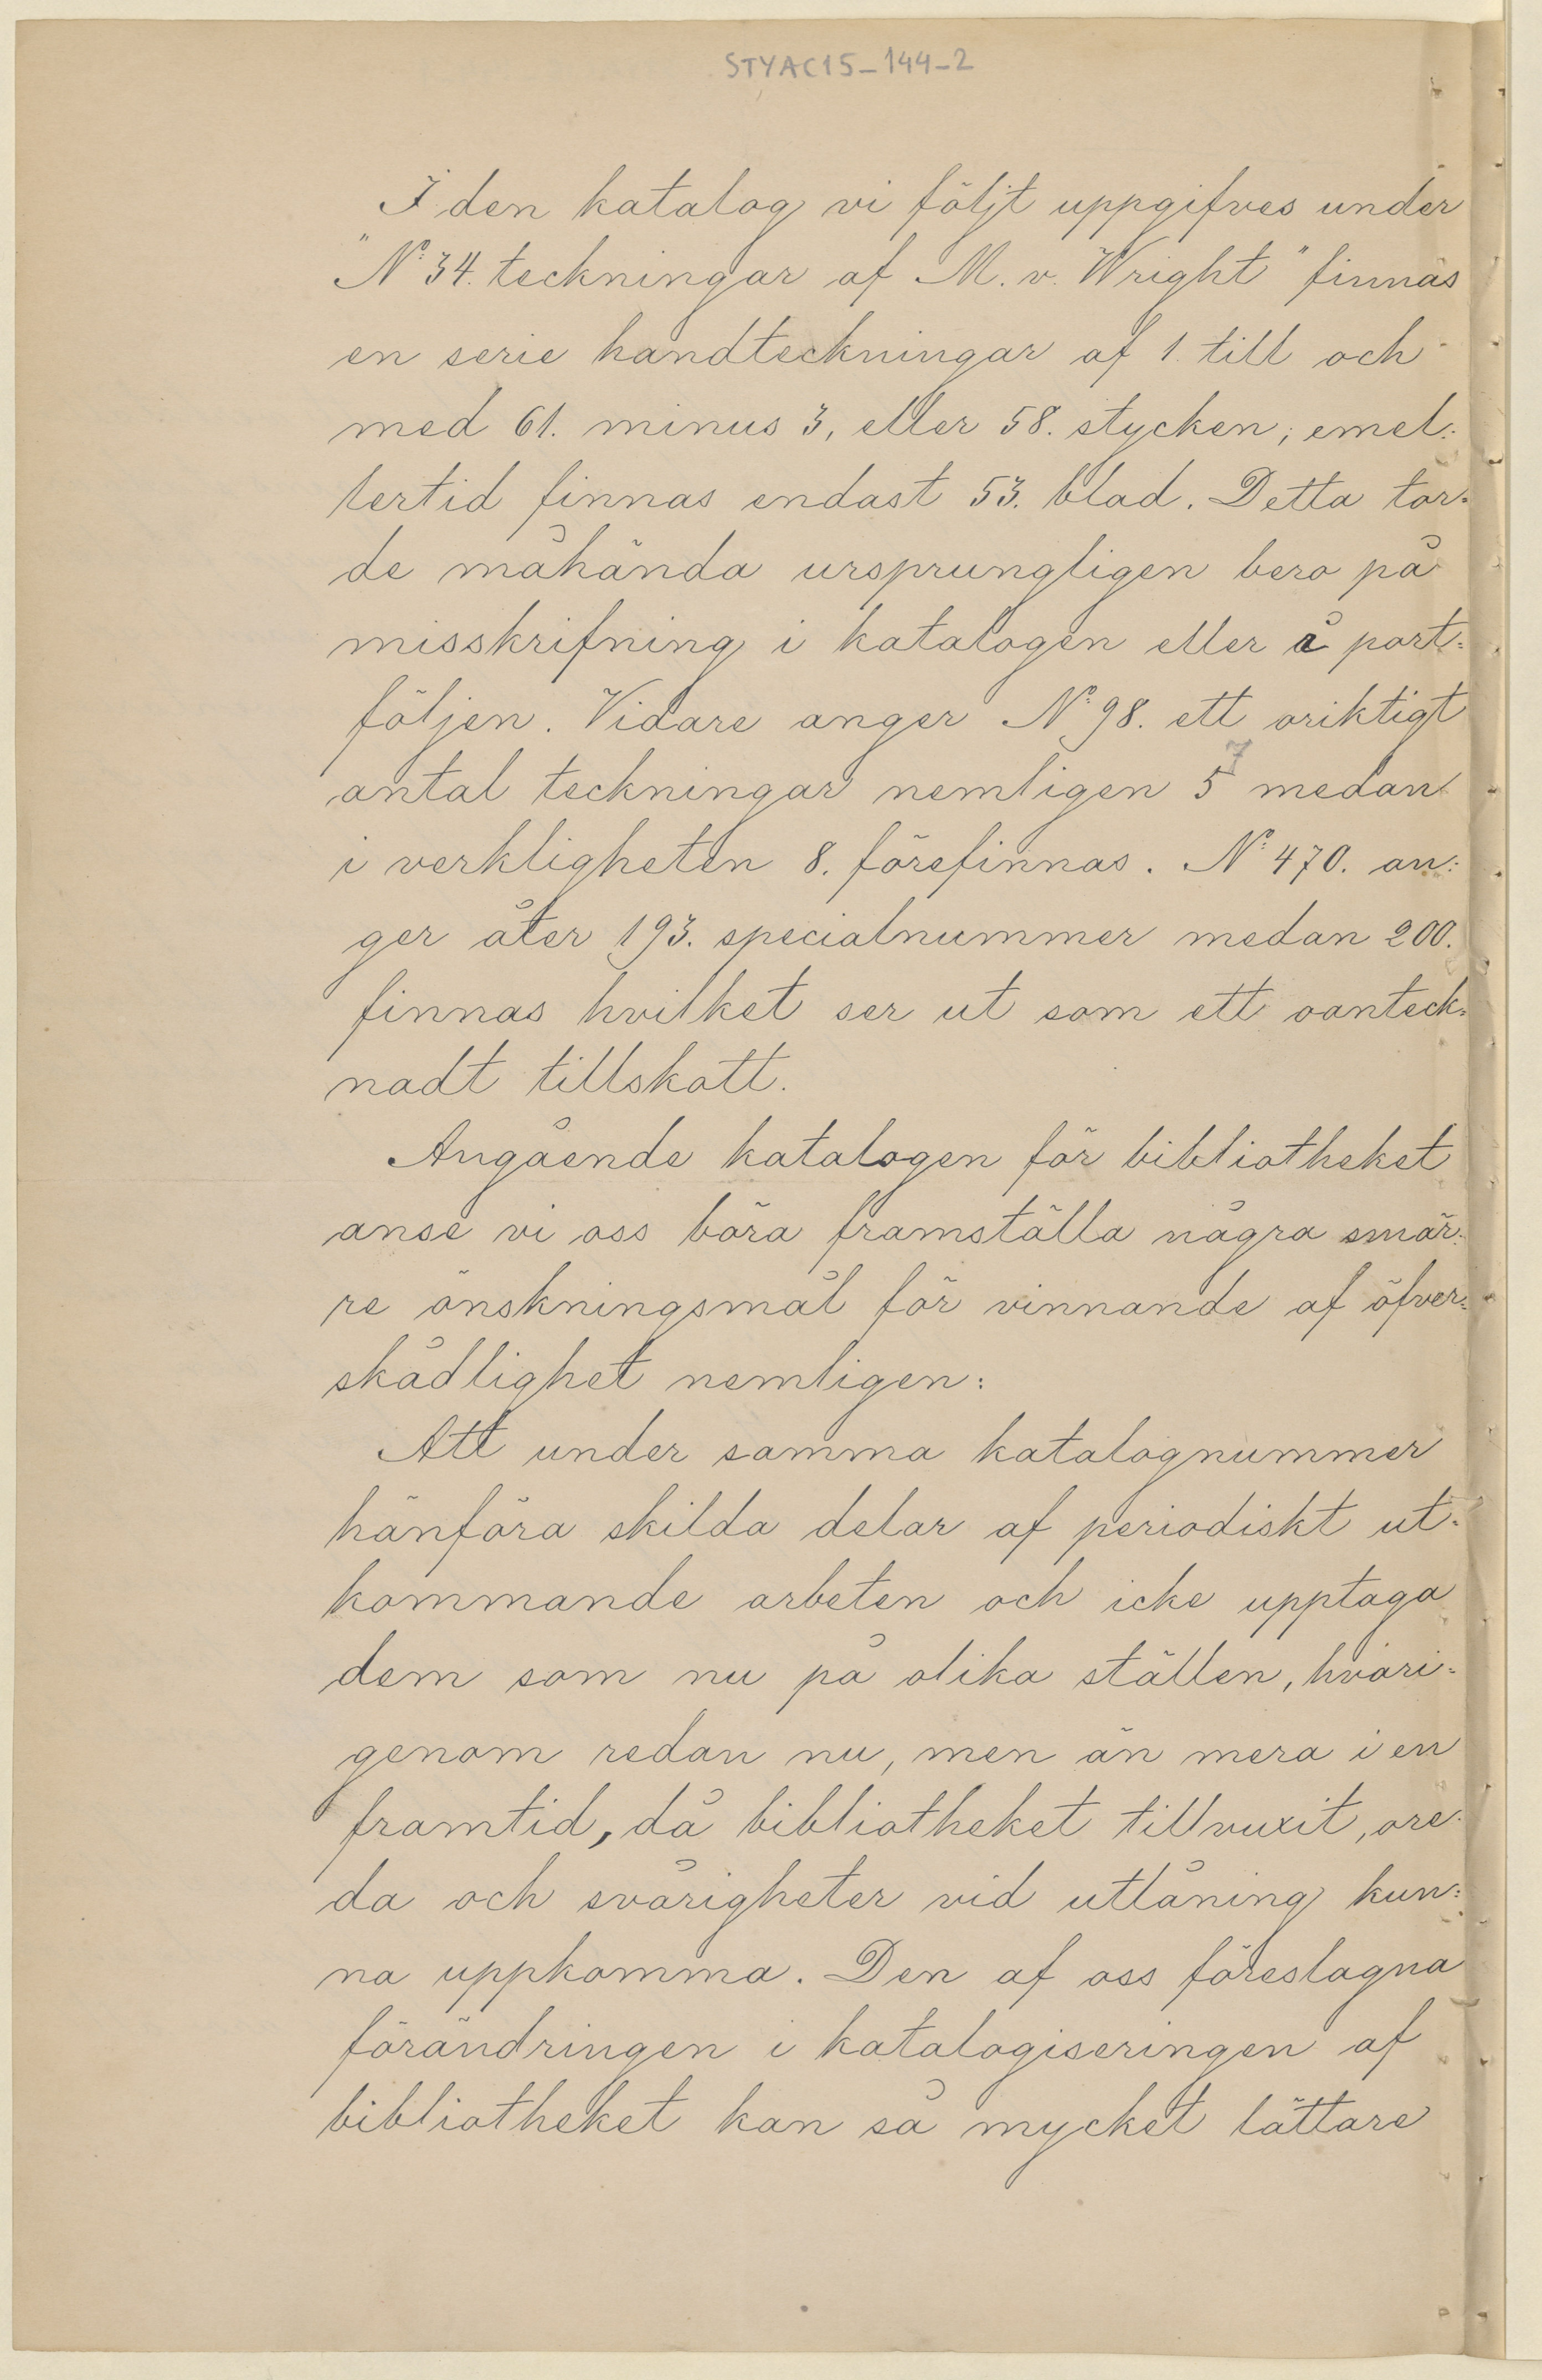 STYAC15-144-2
I den katalog vi följt uppgifves under
"No 34. teckningar af M. v. Wright" finnas
en serie handteckningar af 1. till och
med 61. minus 3, eller 58. stycken; emel:
lertid finnas endast 53. blad. Detta tor=
de måhända ursprungligen bero på
misskrifning i katalogen eller å port=
följen. Vidare anger No 98. ett oriktigt
antal teckningar nemligen 5 7 medan
i verkligheten 8. förefinnas. No 470. an:
ger åter 193. specialnummer medan 200.
finnas hvilket ser ut som ett oanteck=
nadt tillskott.
Angående katalogen för bibliotheket
anse vi oss böra framställa några smär:
re önskningsmål för vinnande af öfver=
skådlighet nemligen:
Att under samma katalognummer
hänföra skilda delar af periodiskt ut=
kommande arbeten och icke upptaga
dem som nu på olika ställen, hvari=
genom redan nu, men än mera i en
framtid, då bibliotheket tillvuxit, ore=
da och svårigheter vid utlåning kun:
na uppkomma. Den af oss föreslagna
förändringen i katalogiseringen af
bibliotheket kan så mycket lättare